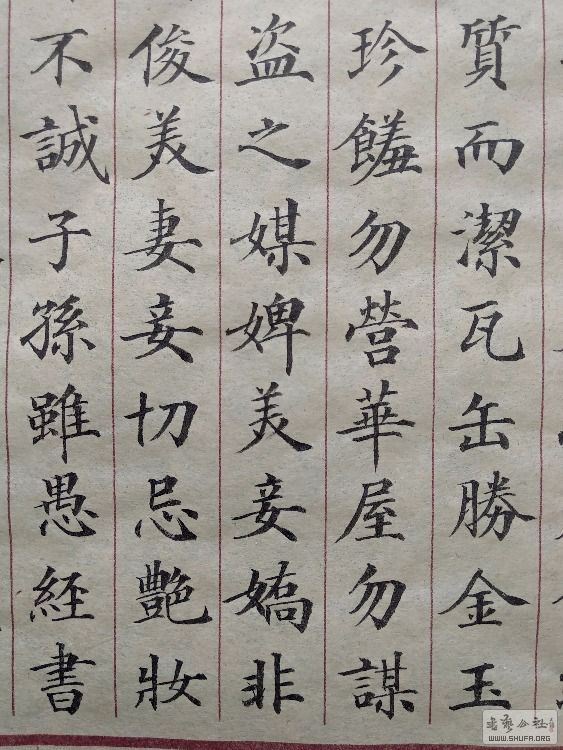 質而潔瓦缶勝金玉
珍饈勿營華屋勿謀
盗之媒婢美妾嬌非
俊美妻妾切忌艷妝
不誠子孫雖愚經書
书艺公社
WWW.SHUFA.ORG